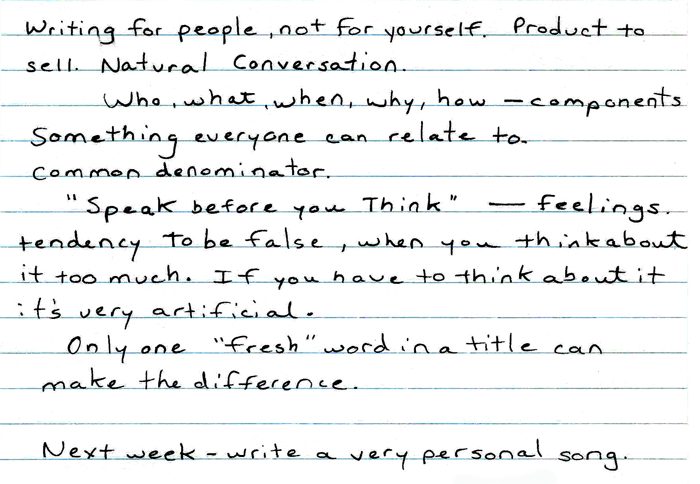 Writing for people, not for yourself. Product to
sell. Natural Conversation.
Who, what, when, why, how - components
Something everyone can relate to.
Common denominator.
"Speak before you Think" — feelings.
tendency to be false, when you think about
it too much. If you have to think about it
it's very artificial.
Only one "fresh" word in a title can
make the difference.
Next week - write a very personal song.